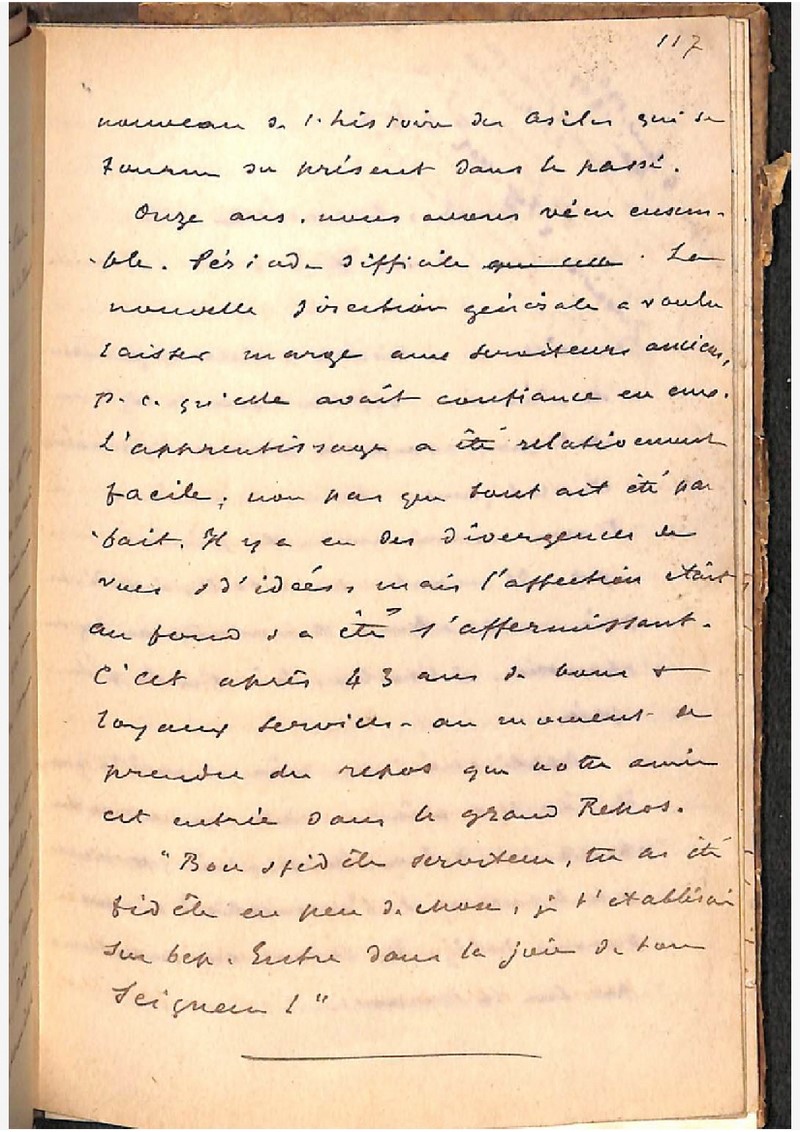 117
nouveau de l'histoire des Asiles qui se
tourne du présent dans le passé.
Onze ans, nous avons vécu ensem-
-ble. Période difficile que celle . La
nouvelle direction générale a voulu
laisser marge aux serviteurs anciens,
p. c. qu'elle avait confiance en eux.
L'apprentissage a été relativement
facile; non pas que tout ait été par
-fait. Il y a eu des divergences de
vues & d'idées, mais l'affection était
au fond & a été s'affermissant.
C'est après 43 ans de bons &
loyaux services au moment de
prendre du repos que notre amie
est entrée dans le grand Repos.
"Bon & fidèle serviteur, tu as été
fidèle en peu de chose, je t'établirai
sur bcp. Entre dans la joie de ton
Seigneur !"